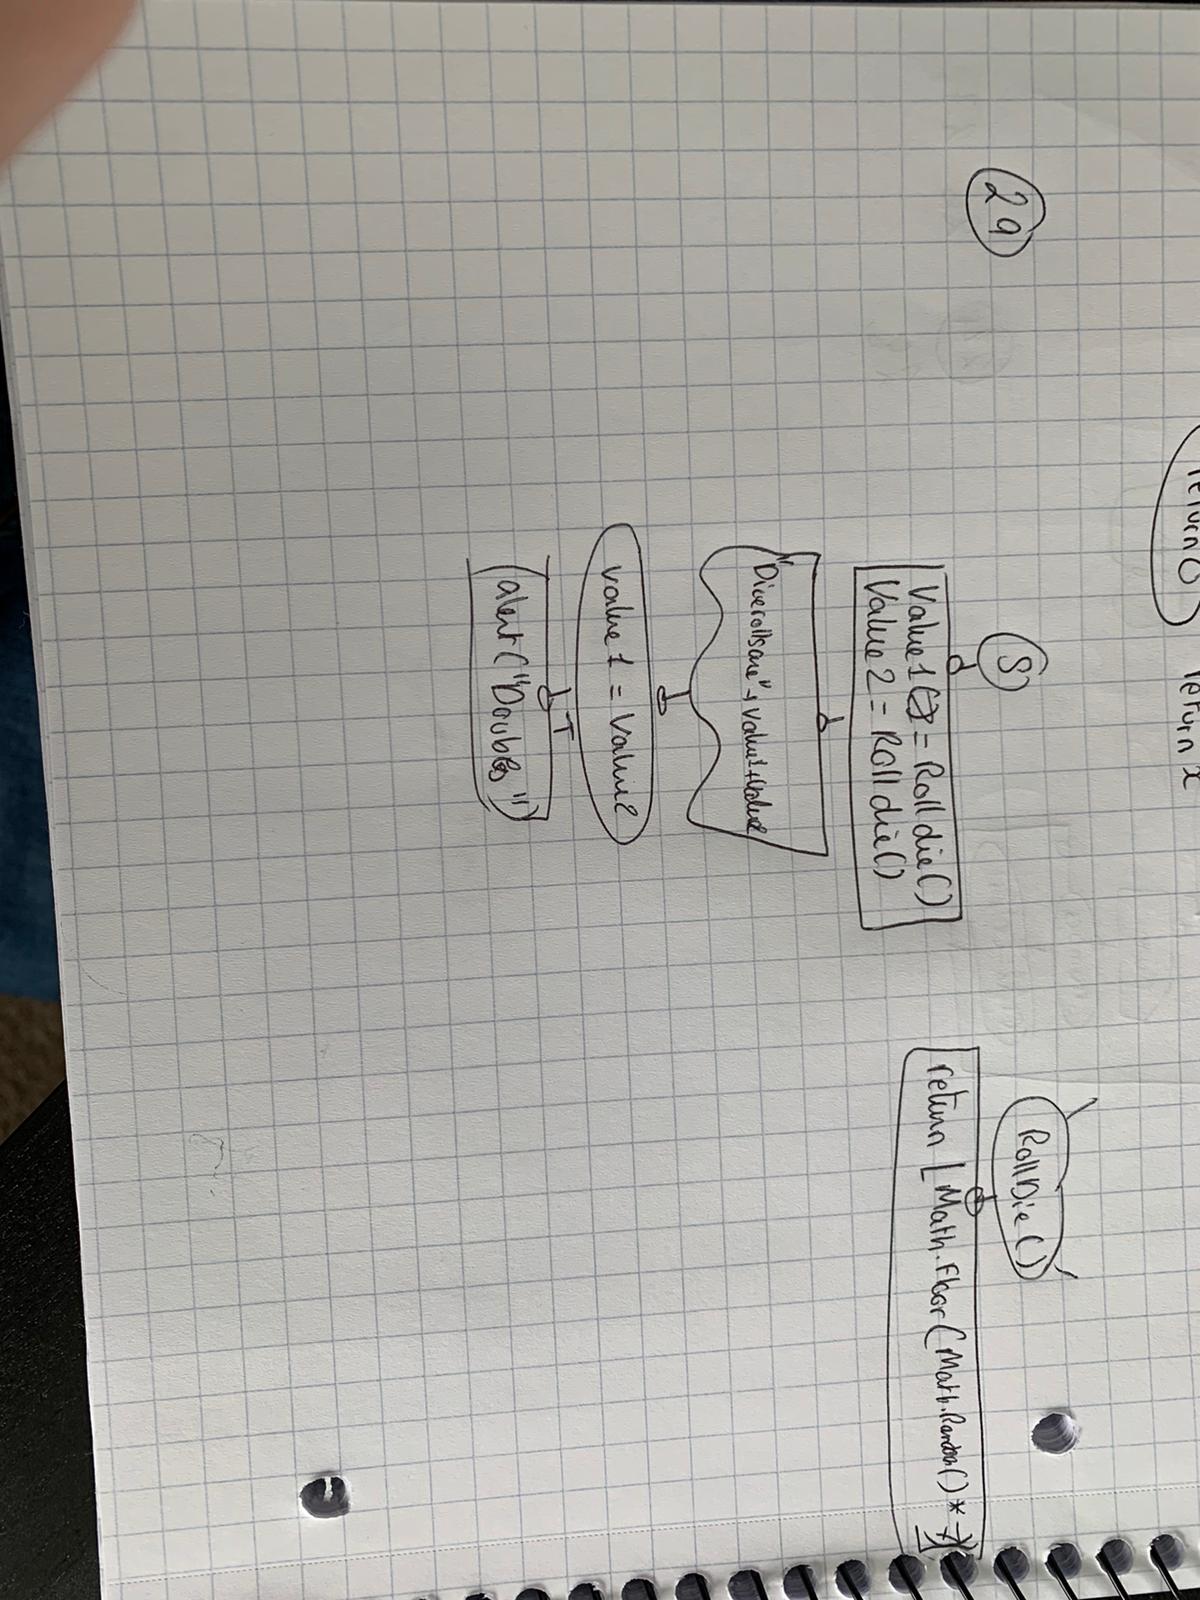 return 0
return x
29
S
Value1 = Roll die()
Value2 = Roll die()
"Dice rolls are" + value1 + value
value 1 = value
T
(alert("Doubles"))
RollDie()
return [Math.Floor(Math.Random() *